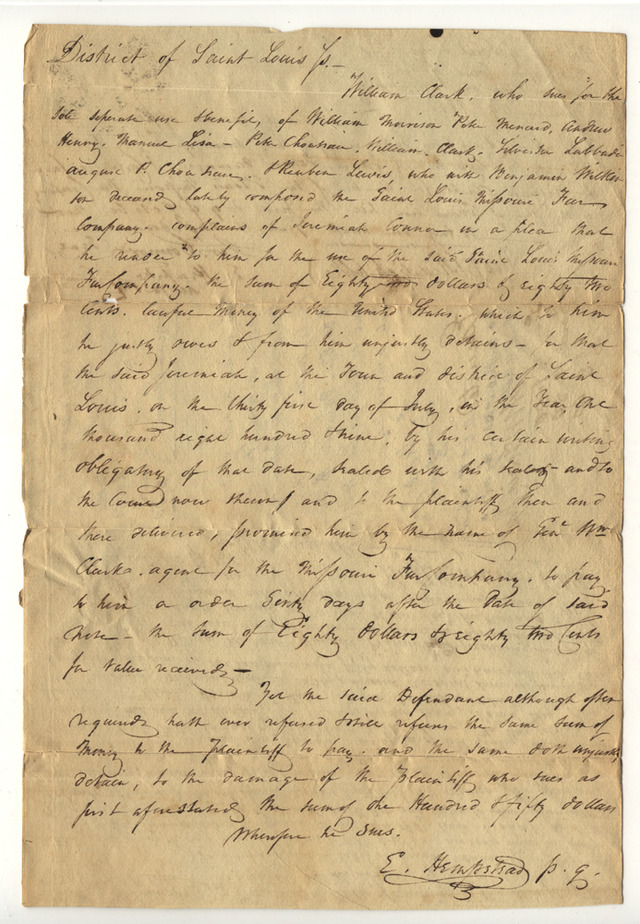 District of Saint Louis Ss.
William Clark, who sues for the
sole seperate use & benefit, of William Morrison Peter Menard, Andrew
Henry, Manuel Lisa - Peter Chouteau, William Clark, Silvester Labbadie
august P. Chouteau. & Reuben Lewis, who with Benjamin Wilkin
son deceased lately composed the Saint Louis Missouri Fur
Company. complains of Jeremiah Connor in a plea that
he render to him for the use of the said Saint Louis Missouri
Fur Company. the sum of Eighty two dollars & eighty two
Cents. lawful money of the United States. which to him
he justly owes & from him unjustly detains - for that
the said Jeremiah, at the Town and district of Saint
Louis, on the thirty first day of July, in the Year One
thousand eight hundred & nine, by his certain writing
obligatory of that date, sealed with his seal and to
the Court now shewn, and to the plaintiff then and
there delivered, promised him by the name of Genl Wm
Clark. agent for the Missouri Fur Company. to pay
to him or order Sixty days after the Date of said
note - the sum of Eighty Dollars & eighty two Cents
for value received -
Yet the said Defendant although often
required hath ever refused & still refuses the same sum of
Money to the Plaintiff to pay. and the same doth unjustly
detain, to the damage of the Plaintiff who sues as
first aforestated the sum of One Hundred & fifty dollars
Wherefore he sues.
E. Hempstead p. q.